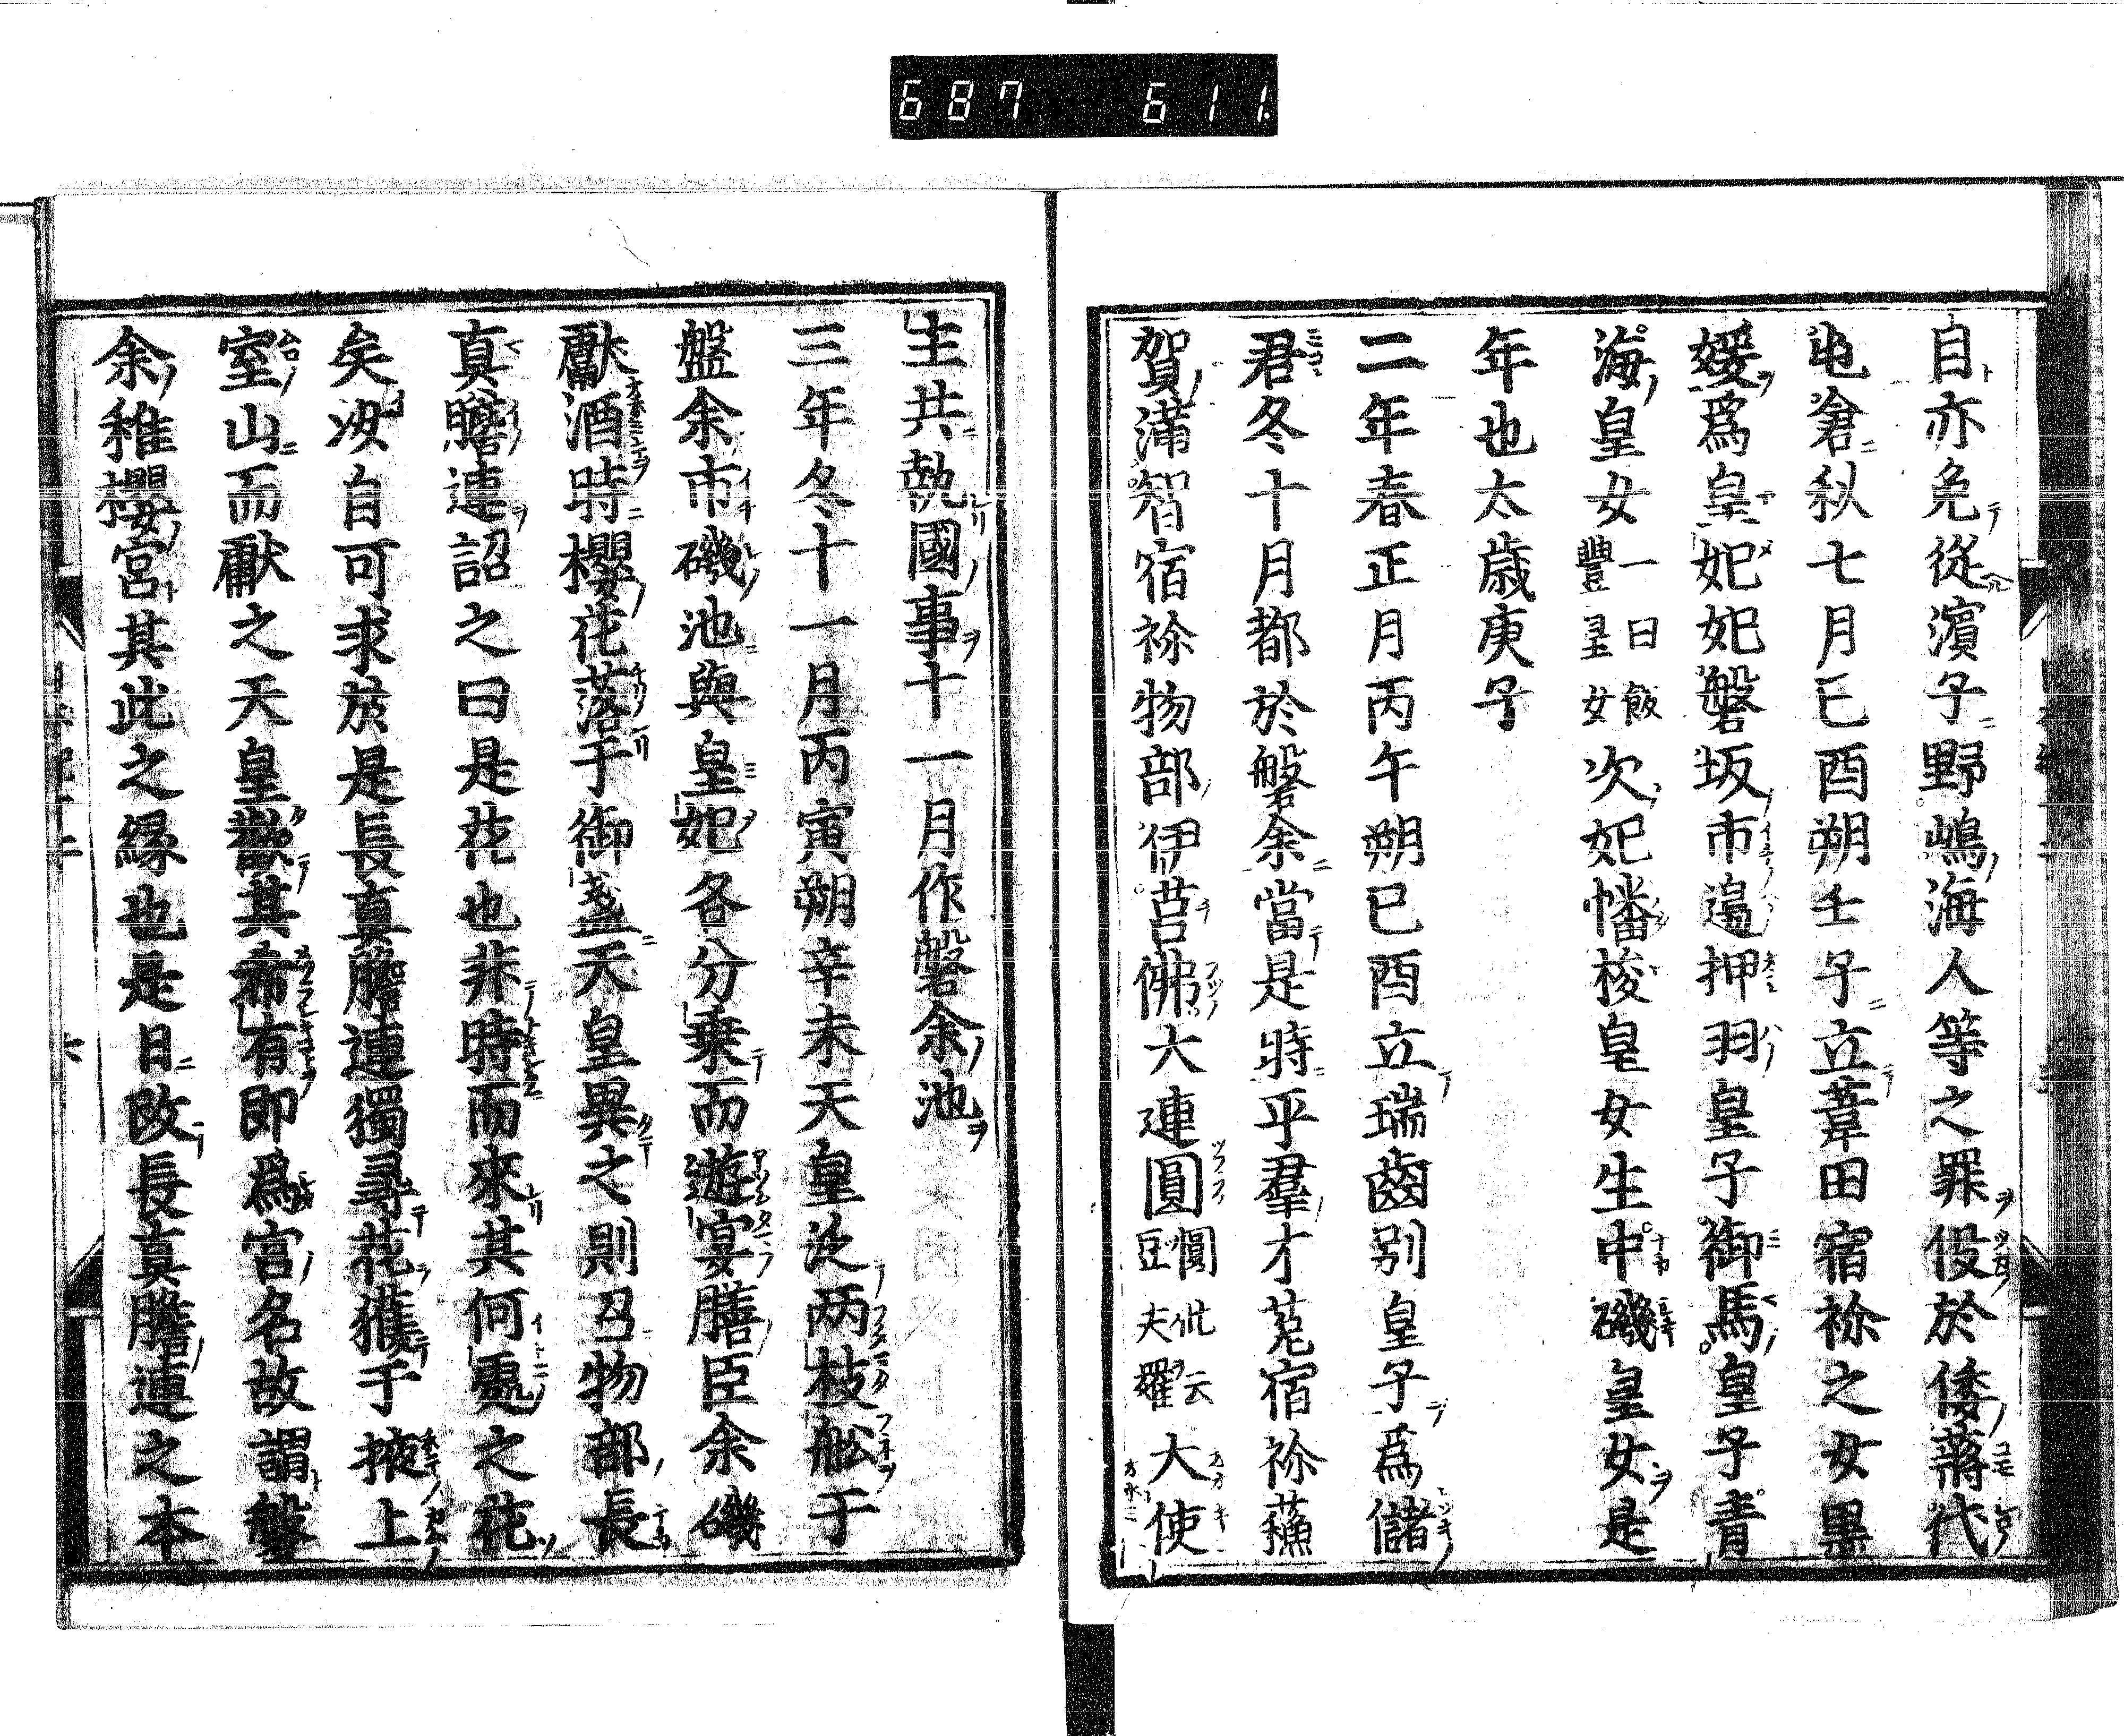 687 611
自亦免從濱子野嶋海人等之罪役於倭蔣代
屯倉秋七月己酉朔壬子立葦田宿祢之女黒
媛爲皇妃妃磐坂市邉押羽皇子御馬皇子青
海皇女一曰飯豐皇女次妃幡梭皇女生中磯皇女是
年也太歳庚子
二年春正月丙午朔己酉立瑞齒別皇子爲儲
君冬十月都於磐余當是時平羣木菟宿祢蘓
賀滿智宿祢物部伊莒佛大連圓圓此云豆夫羅大使
主共執國事十一月作磐余池
三年冬十一月丙寅朔辛未天皇泛兩枝舩于
盤余市磯池與皇妃各分乗而遊宴膳臣余磯
獻酒時櫻花落于御盞天皇異之則召物部長
真膽連詔之曰是花也非時而來其何處之花
矣汝自可求於是長真膽連獨尋花獲于掖上
室山而獻之天皇歡其希有即爲宮名故謂磐
余稚櫻宮其此之縁也是日改長真膽連之本